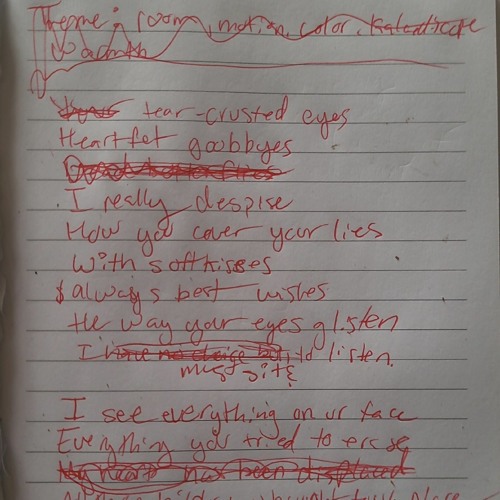 Theme: room, motion, color, kaleidoscope
Warmth
tear-crusted eyes
Heartfet goobbyes
I really despise
How you cover your lies
With soft kisses
& always best wishes
the way your eyes glisten
I have no choice but to listen.
must sit &
I see everything on ur face
Everything you tried to erase
My heart has been displaced